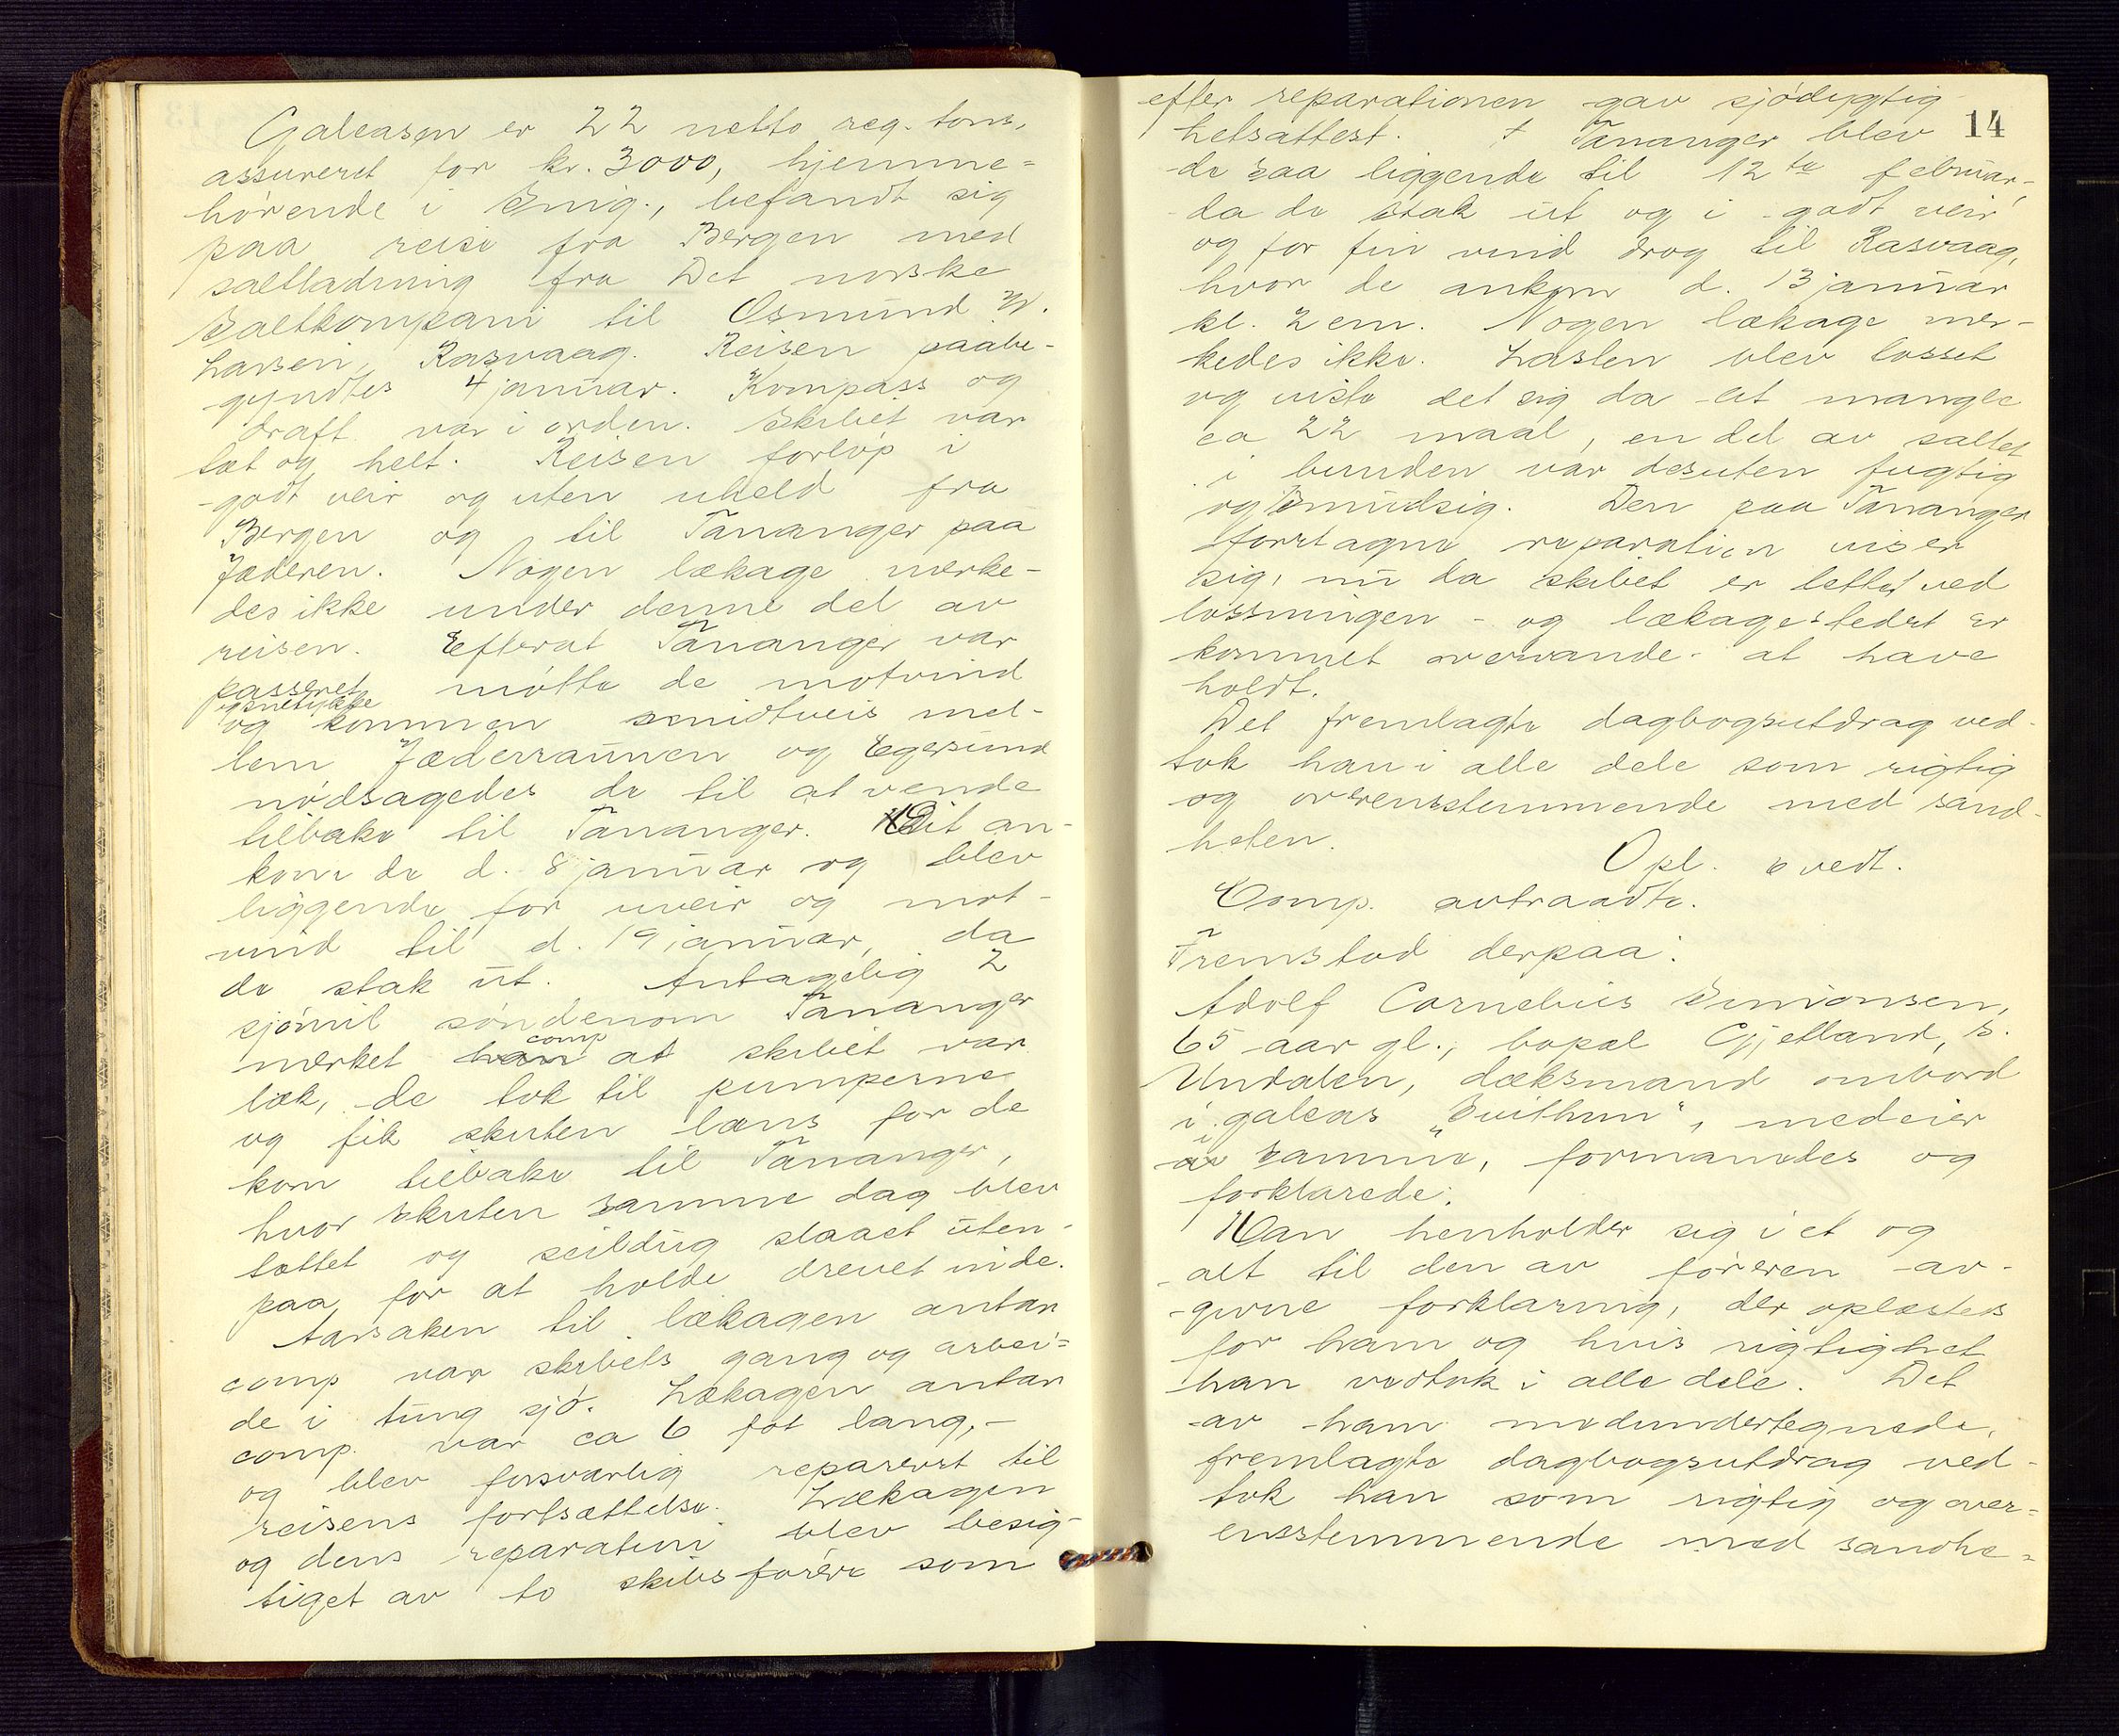 Galeasen er 22 netto reg. tons,
assureret for kr. 3000, hjemme=
hørende i Snig., befandt sig
paa reise fra Bergen med
saltladning fra Det norske
Saltkompani til Osmund W.
Larsen, Rasvaag. Reisen paabe-
gyndtes 4 januar. Kompass og
draft var i orden. Skibet var
tæt og helt. Reisen forløp i
godt veir og uten uheld fra
Bergen og til Tananger paa
Jæderen. Nogen lækage merke-
des ikke under denne del av
reisen. Efterat Tananger var
passeret møtte de motvind
og snetykke
og kommen midtveis mel-
lem Jæderraunen og Egersund
nødsagedes de til at vende
tilbake til Tananger. Dit an-
kom de d. 8 januar og blev
liggende for uveir og mot-
vind til d. 19 januar, da
de stak ut. Antagelig 2
sjømil søndenom Tananger
merket han comp at skibet var
læk, de tok til pumperne
og fik skuten læns før de
kom tilbake til Tananger,
hvor skuten samme dag blev
tættet og seildug slaaet uten-
paa for at holde drevet inde.
Aarsaken til lækagen antar
comp var skibets gang og arbei=
de i tung sjø. Lækagen antar
comp. var ca 6 fot lang,-
og blev forsvarlig reparert til
reisens fortsættelse. Lækagen
og dens reparation blev besig-
tiget av to skibsførere som
14
efter reparationen gav sjødygtig
hetsattest. I Tananger blev
de saa liggende til 12te februar,
da de stak ut og i godt veir
og for fin vind drog til Rasvaag,
hvor de ankom d. 13 januar
kl. 2 em. Nogen lækage mer-
kedes ikke. Lasten blev losset
og viste det sig da at mangle
ca 22 maal, en del av saltet
i bunden var desuten fugtig
og smudsig. Den paa Tananger
foretagne reparation viser
sig, nu da skibet er lettet ved
lossningen - og lækagestedet er
kommet overvande - at have
holdt.
Det fremlagte dagbogsutdrag ved-
tok han i alle dele som rigtig
og overensstemmende med sand-
heten.
Opl. & vedt.
Comp. avtraadte.
Fremstod derpaa:
Adolf Cornelius Simonsen,
65 aar gl., bopæl Gjetland, s.
Undalen, dæksmand ombord
i galeas „Svithun", medeier
i
av samme, formandes og
forklarede:
Han henholder sig i et og
alt til den av føreren av-
givne forklaring, der oplæstes
for ham og hvis rigtighet
han vedtok i alle dele. Det
av ham medundertegnede,
fremlagte dagbogsutdrag ved-
tok han som rigtig og over=
ensstemmende med sandhe=